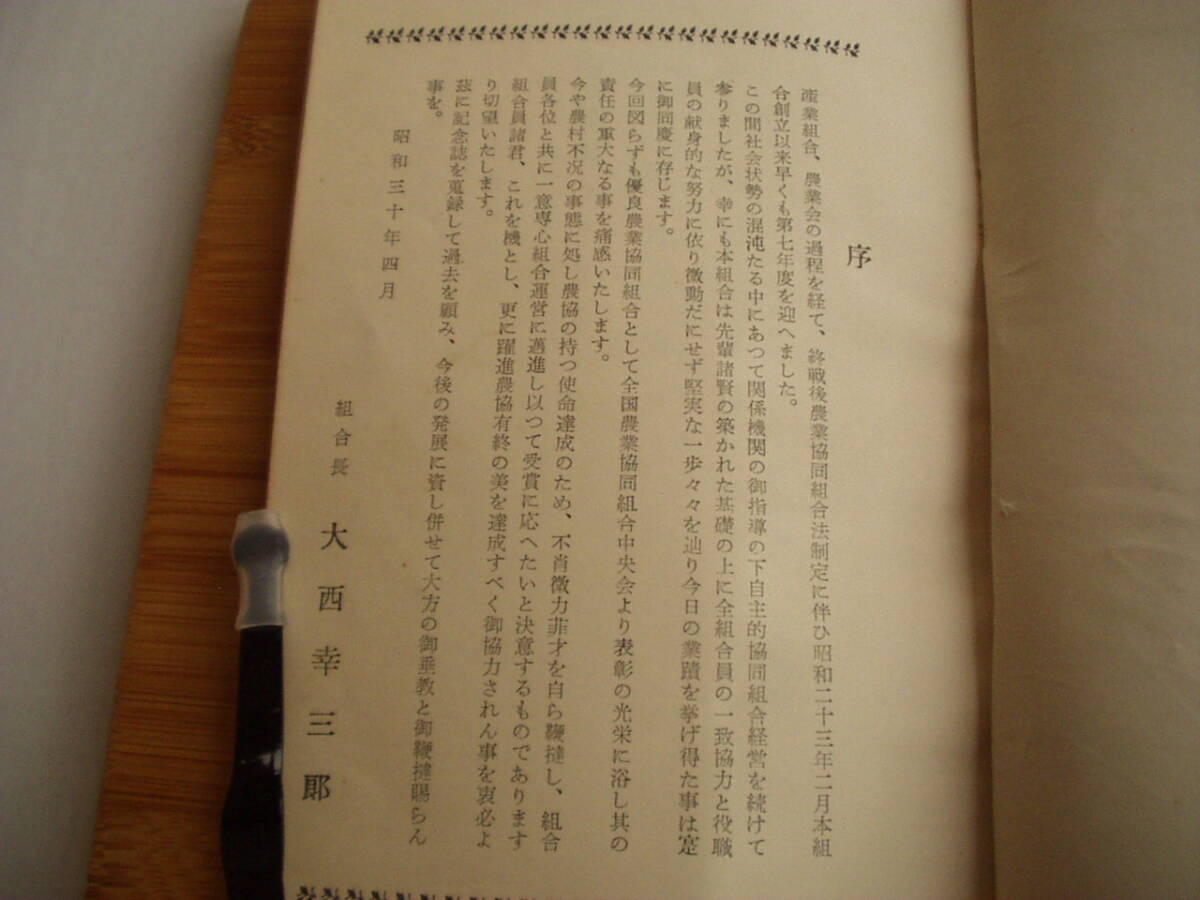 序
産業組合、農業会の過程を経て、終戦後農業協同組合法制定に伴ひ昭和二十三年二月本組
合創立以来早くも第七年度を迎へました。
この間社会状勢の混沌たる中にあつて関係機関の御指導の下自主的協同組合経営を続けて
参りましたが、幸にも本組合は先輩諸賢の築かれた基礎の上に全組合員の一致協力と役職
員の献身的な努力に依り微動だにせず堅実な一歩々々を辿り今日の業蹟を挙げ得た事は寔
に御同慶に存じます。
今回図らずも優良農業協同組合として全国農業協同組合中央会より表彰の光栄に浴し其の
責任の重大なる事を痛感いたします。
今や農村不況の事態に処し農協の持つ使命達成のため、不肖微力菲才を自ら鞭撻し、組合
員各位と共に一意専心組合運営に邁進し以つて受賞に応へたいと決意するものであります
組合員諸君、これを機とし、更に躍進農協有終の美を達成すべく御協力されん事を衷心よ
り切望いたします。
茲に記念誌を蒐録して過去を顧み、今後の発展に資し併せて大方の御垂教と御鞭撻賜らん
事を。
昭和三十年四月
組合長 大西幸三郎